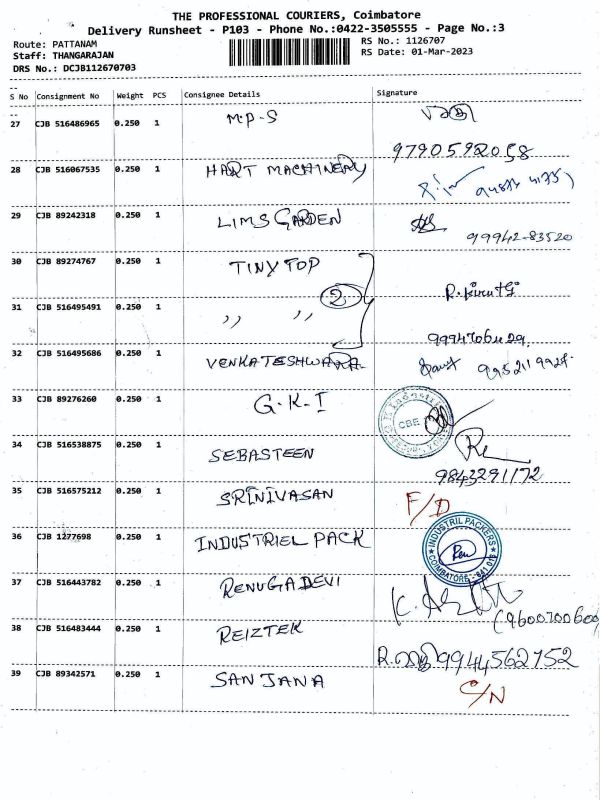 THE PROFESSIONAL COURIERS, Coimbatore
Delivery Runsheet - P103 - Phone No.:0422-3505555 - Page No.:3
Route: PATTANAM
RS No.: 1126707
Staff: THANGARAJAN
RS Date: 01-Mar-2023
DRS No.: DCJB112670703
S No Consignment No Weight PCS Consignee Details Signature
27 CJB 516486965 0.250 1 M.P-S
9790592058
28 CJB 516067535 0.250 1 HART MACHINERY
29 CJB 89242318 0.250 1 LIMS GARDEN
99942-83520
30 CJB 89274767 0.250 1 TINY TOP
2
31 CJB 516495491 0.250 1 ,, ,,
32 CJB 516495686 0.250 1 VENKATESHWARA
33 CJB 89276260 0.250 1 G.K.I
CBE
34 CJB 516538875 0.250 1 SEBASTEEN
9843291172
35 CJB 516575212 0.250 1 SRINIVASAN F/D
36 CJB 1277698 0.250 1 INDUSTRIEL PACK
INDUSTRIL PACKERS
COIMBATORE
37 CJB 516443782 0.250 1 RENUGADEVI
(9600700600)
38 CJB 516483444 0.250 1 REIZTEK
9944562752
39 CJB 89342571 0.250 1 SANJANA C/N